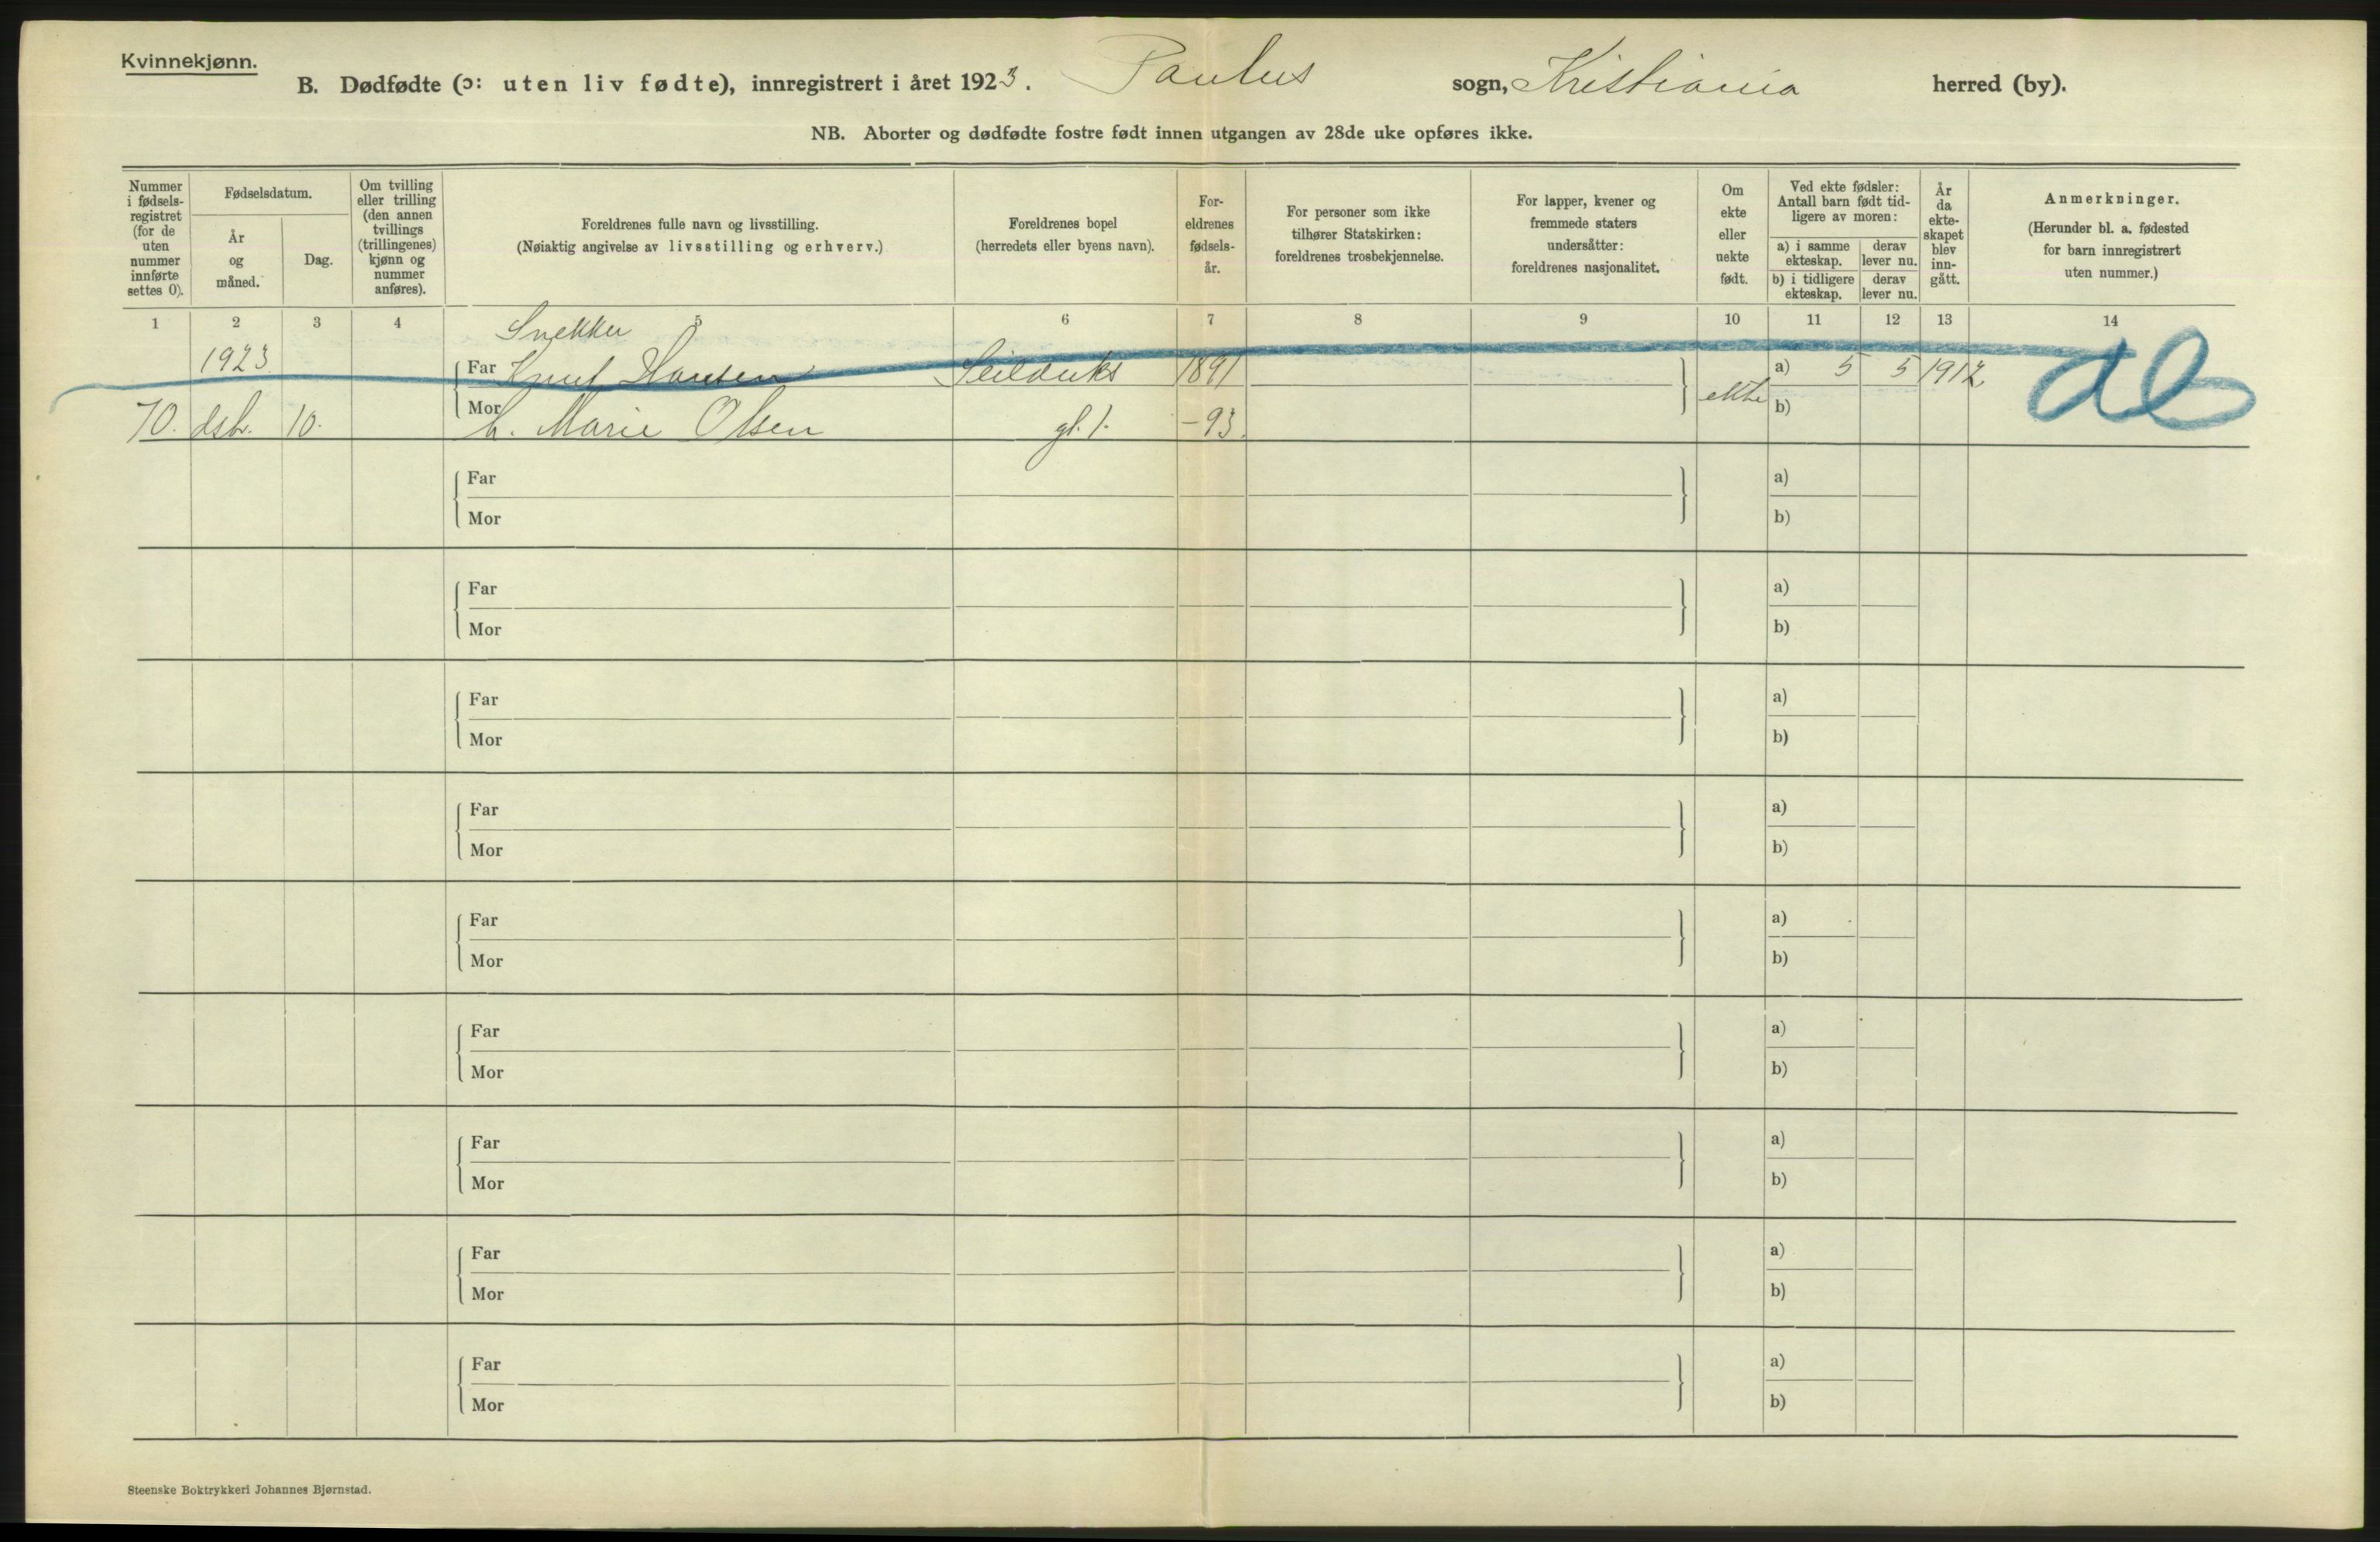 Kvinnekjønn.
B. Dødfødte (ɔ: uten liv fødte), innregistrert i året 1923. Paulus sogn, Kristiania herred (by).
NB. Aborter og dødfødte fostre født innen utgangen av 28de uke opføres ikke.
Nummer i fødsels-registret (for de uten nummer innførte settes 0).
Fødselsdatum.
År og måned.
Dag.
Om tvilling eller trilling (den annen tvillings (trillingenes) kjønn og nummer anføres).
Foreldrenes fulle navn og livsstilling.
(Nøiaktig angivelse av livsstilling og erhverv.)
Foreldrenes bopel
(herredets eller byens navn).
For-eldrenes fødsels-år.
For personer som ikke tilhører Statskirken: foreldrenes trosbekjennelse.
For lapper, kvener og fremmede staters undersåtter: foreldrenes nasjonalitet.
Om ekte eller uekte født.
Ved ekte fødsler: Antall barn født tid-ligere av moren:
a) i samme ekteskap.
derav lever nu.
b) i tidligere ekteskap.
derav lever nu.
År da ekte-skapet blev inn-gått.
Anmerkninger.
(Herunder bl. a. fødested for barn innregistrert uten nummer.)
1 2 3 4 5 6 7 8 9 10 11 12 13 14
Snekker
1923 Far Knut Hansen Seilduks 1891 a) 5 5 1912
70. dsbr. 10. Mor h. Marie Olsen gt. 1. -93 ekte b)
Far a)
Mor b)
Far a)
Mor b)
Far a)
Mor b)
Far a)
Mor b)
Far a)
Mor b)
Far a)
Mor b)
Far a)
Mor b)
Far a)
Mor b)
Far a)
Mor b)
Steenske Boktrykkeri Johannes Bjørnstad.